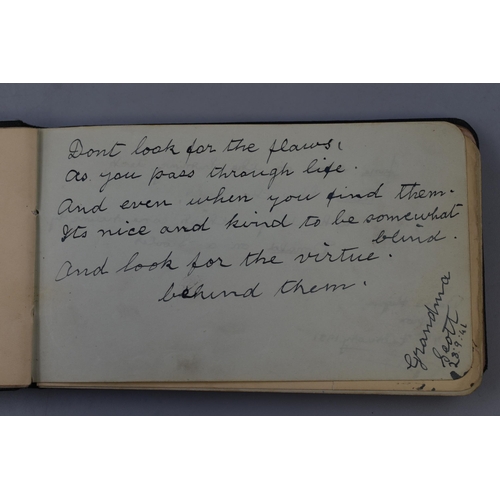 Dont look for the flaws,
as you pass through life.
And even when you find them.
Its nice and kind to be somewhat
blind.
And look for the virtue.
behind them.
Grandma
Scott
23.9.41